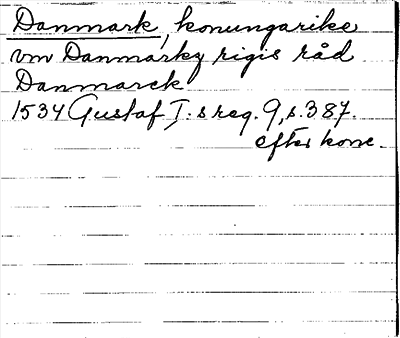 Danmark, konungarike
vm Danmarkz rigis råd
Danmarck
1534 Gustaf I:s reg. 9, s. 387.
efter konc.